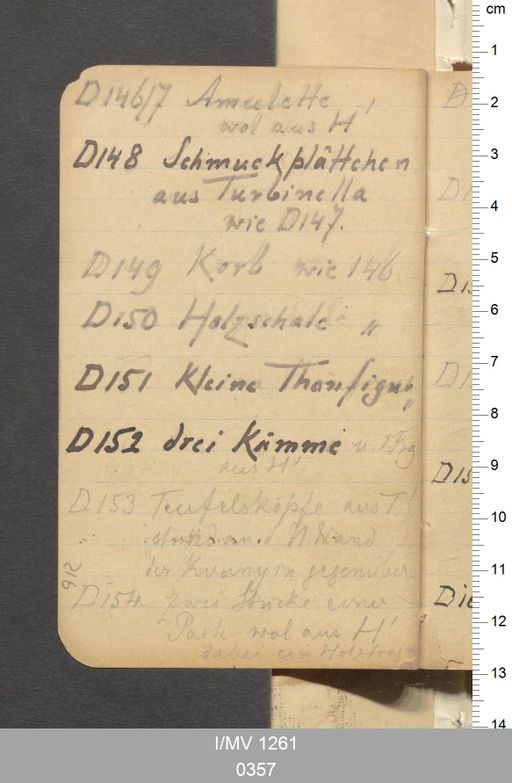 D146/7 Amulette
wol aus H'
D148 Schmuckplättchen
aus Turbinella
wie D147.
D149 Korb wie 146
D150 Holzschale "
D151 Kleine Thonfigur
"
D152 drei Kämme u. 1 Frg
aus H'
D153 Teufelsköpfe aus T'
stand an. N Wand
der Kvanyin gegenüber
D154. zwei Stücke einer
Paste wol aus H'
dabei ein Holzfragm
216
D
D1
D15
D1
D15
D16
cm
1
2
3
4
5
6
7
8
9
10
11
12
13
14
I/MV 1261
0357